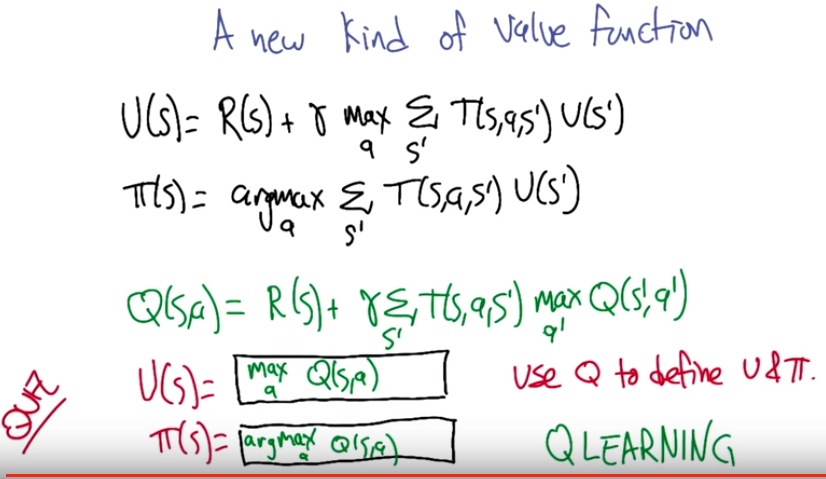 A new kind of value function
U(s)= R(s) + γ max_a Σ_s' T(s,a,s') U(s')
π(s) = argmax_a Σ_s' T(s,a,s') U(s')
Q(s,a) = R(s) + γ Σ_s' T(s,a,s') max_a' Q(s',a')
QUIZ
U(s)= max_a Q(s,a)
USE Q to define U & π.
π(s)= argmax_a Q(s,a)
Q LEARNING